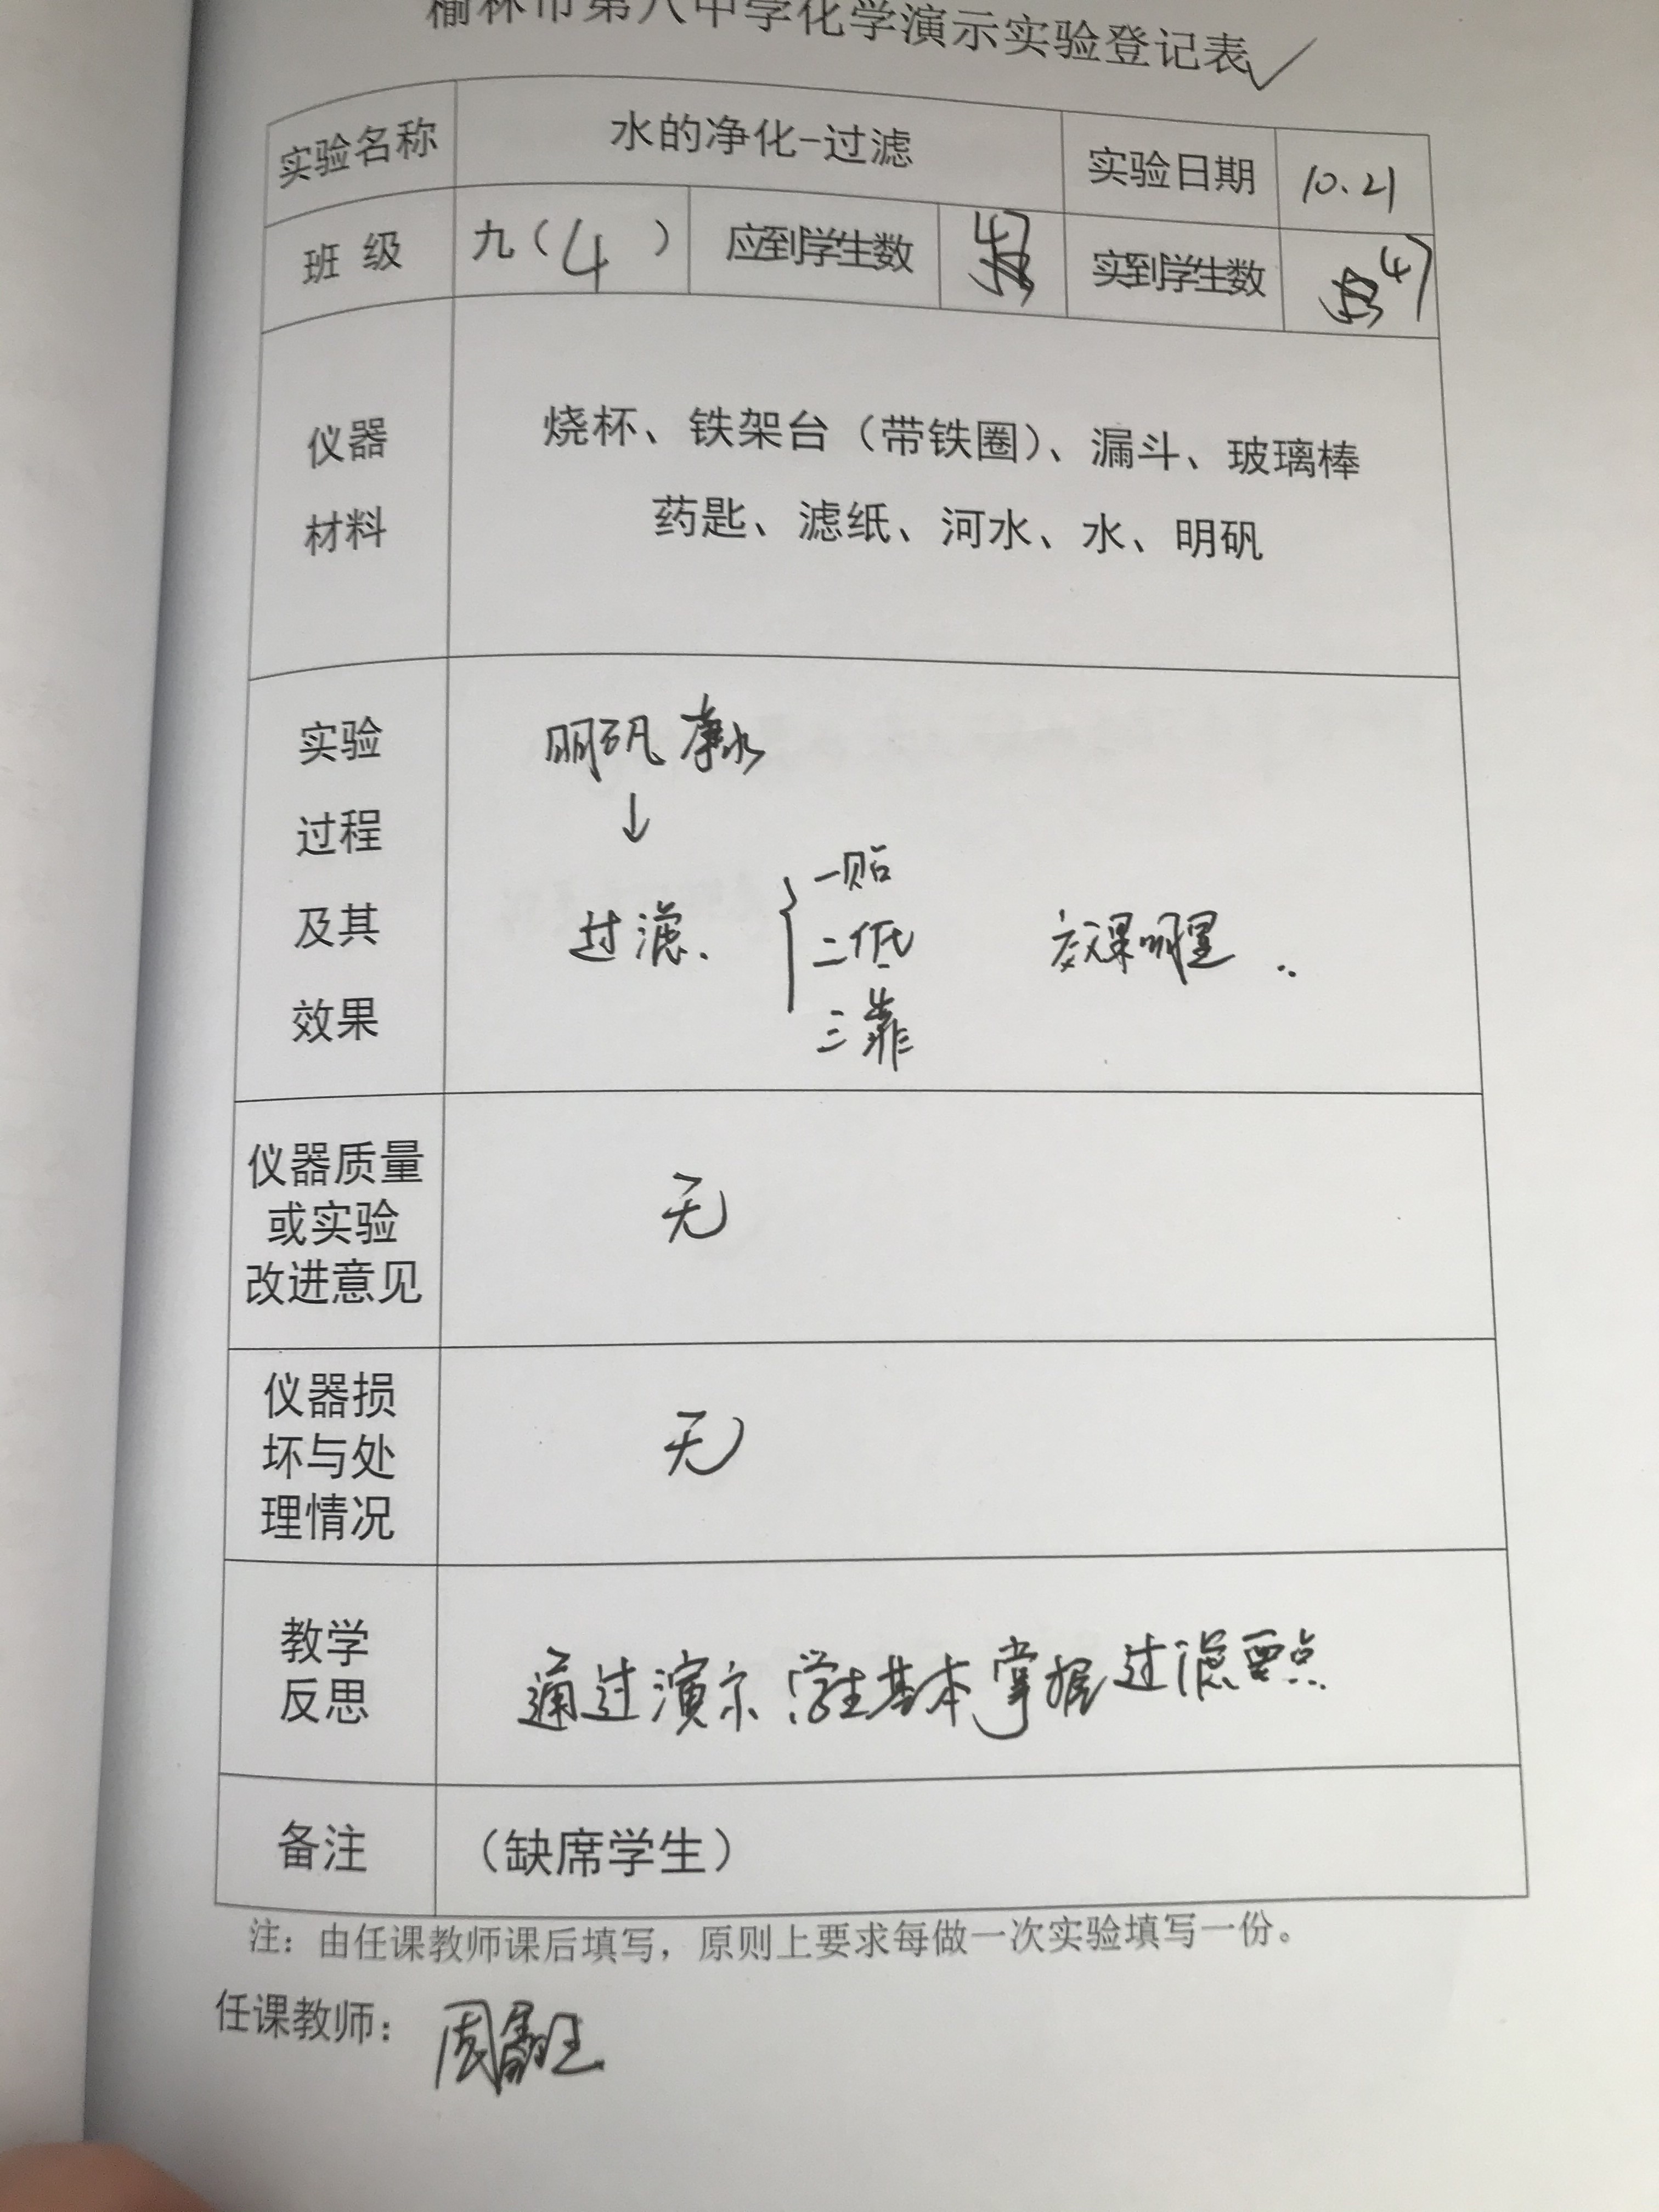 榆林市第八中学化学演示实验登记表
实验名称 水的净化-过滤 实验日期 10.21
班 级 九（4 ） 应到学生数 47 实到学生数 47
仪器
材料
烧杯、铁架台（带铁圈）、漏斗、玻璃棒
药匙、滤纸、河水、水、明矾
实验
过程
及其
效果
明矾 水
↓
过滤.
一贴
二低
三靠
效果明显
仪器质量
或实验
改进意见
无
仪器损
坏与处
理情况
无
教学
反思
通过演示 学生基本掌握过滤要点.
备注 （缺席学生）
注：由任课教师课后填写，原则上要求每做一次实验填写一份。
任课教师：周